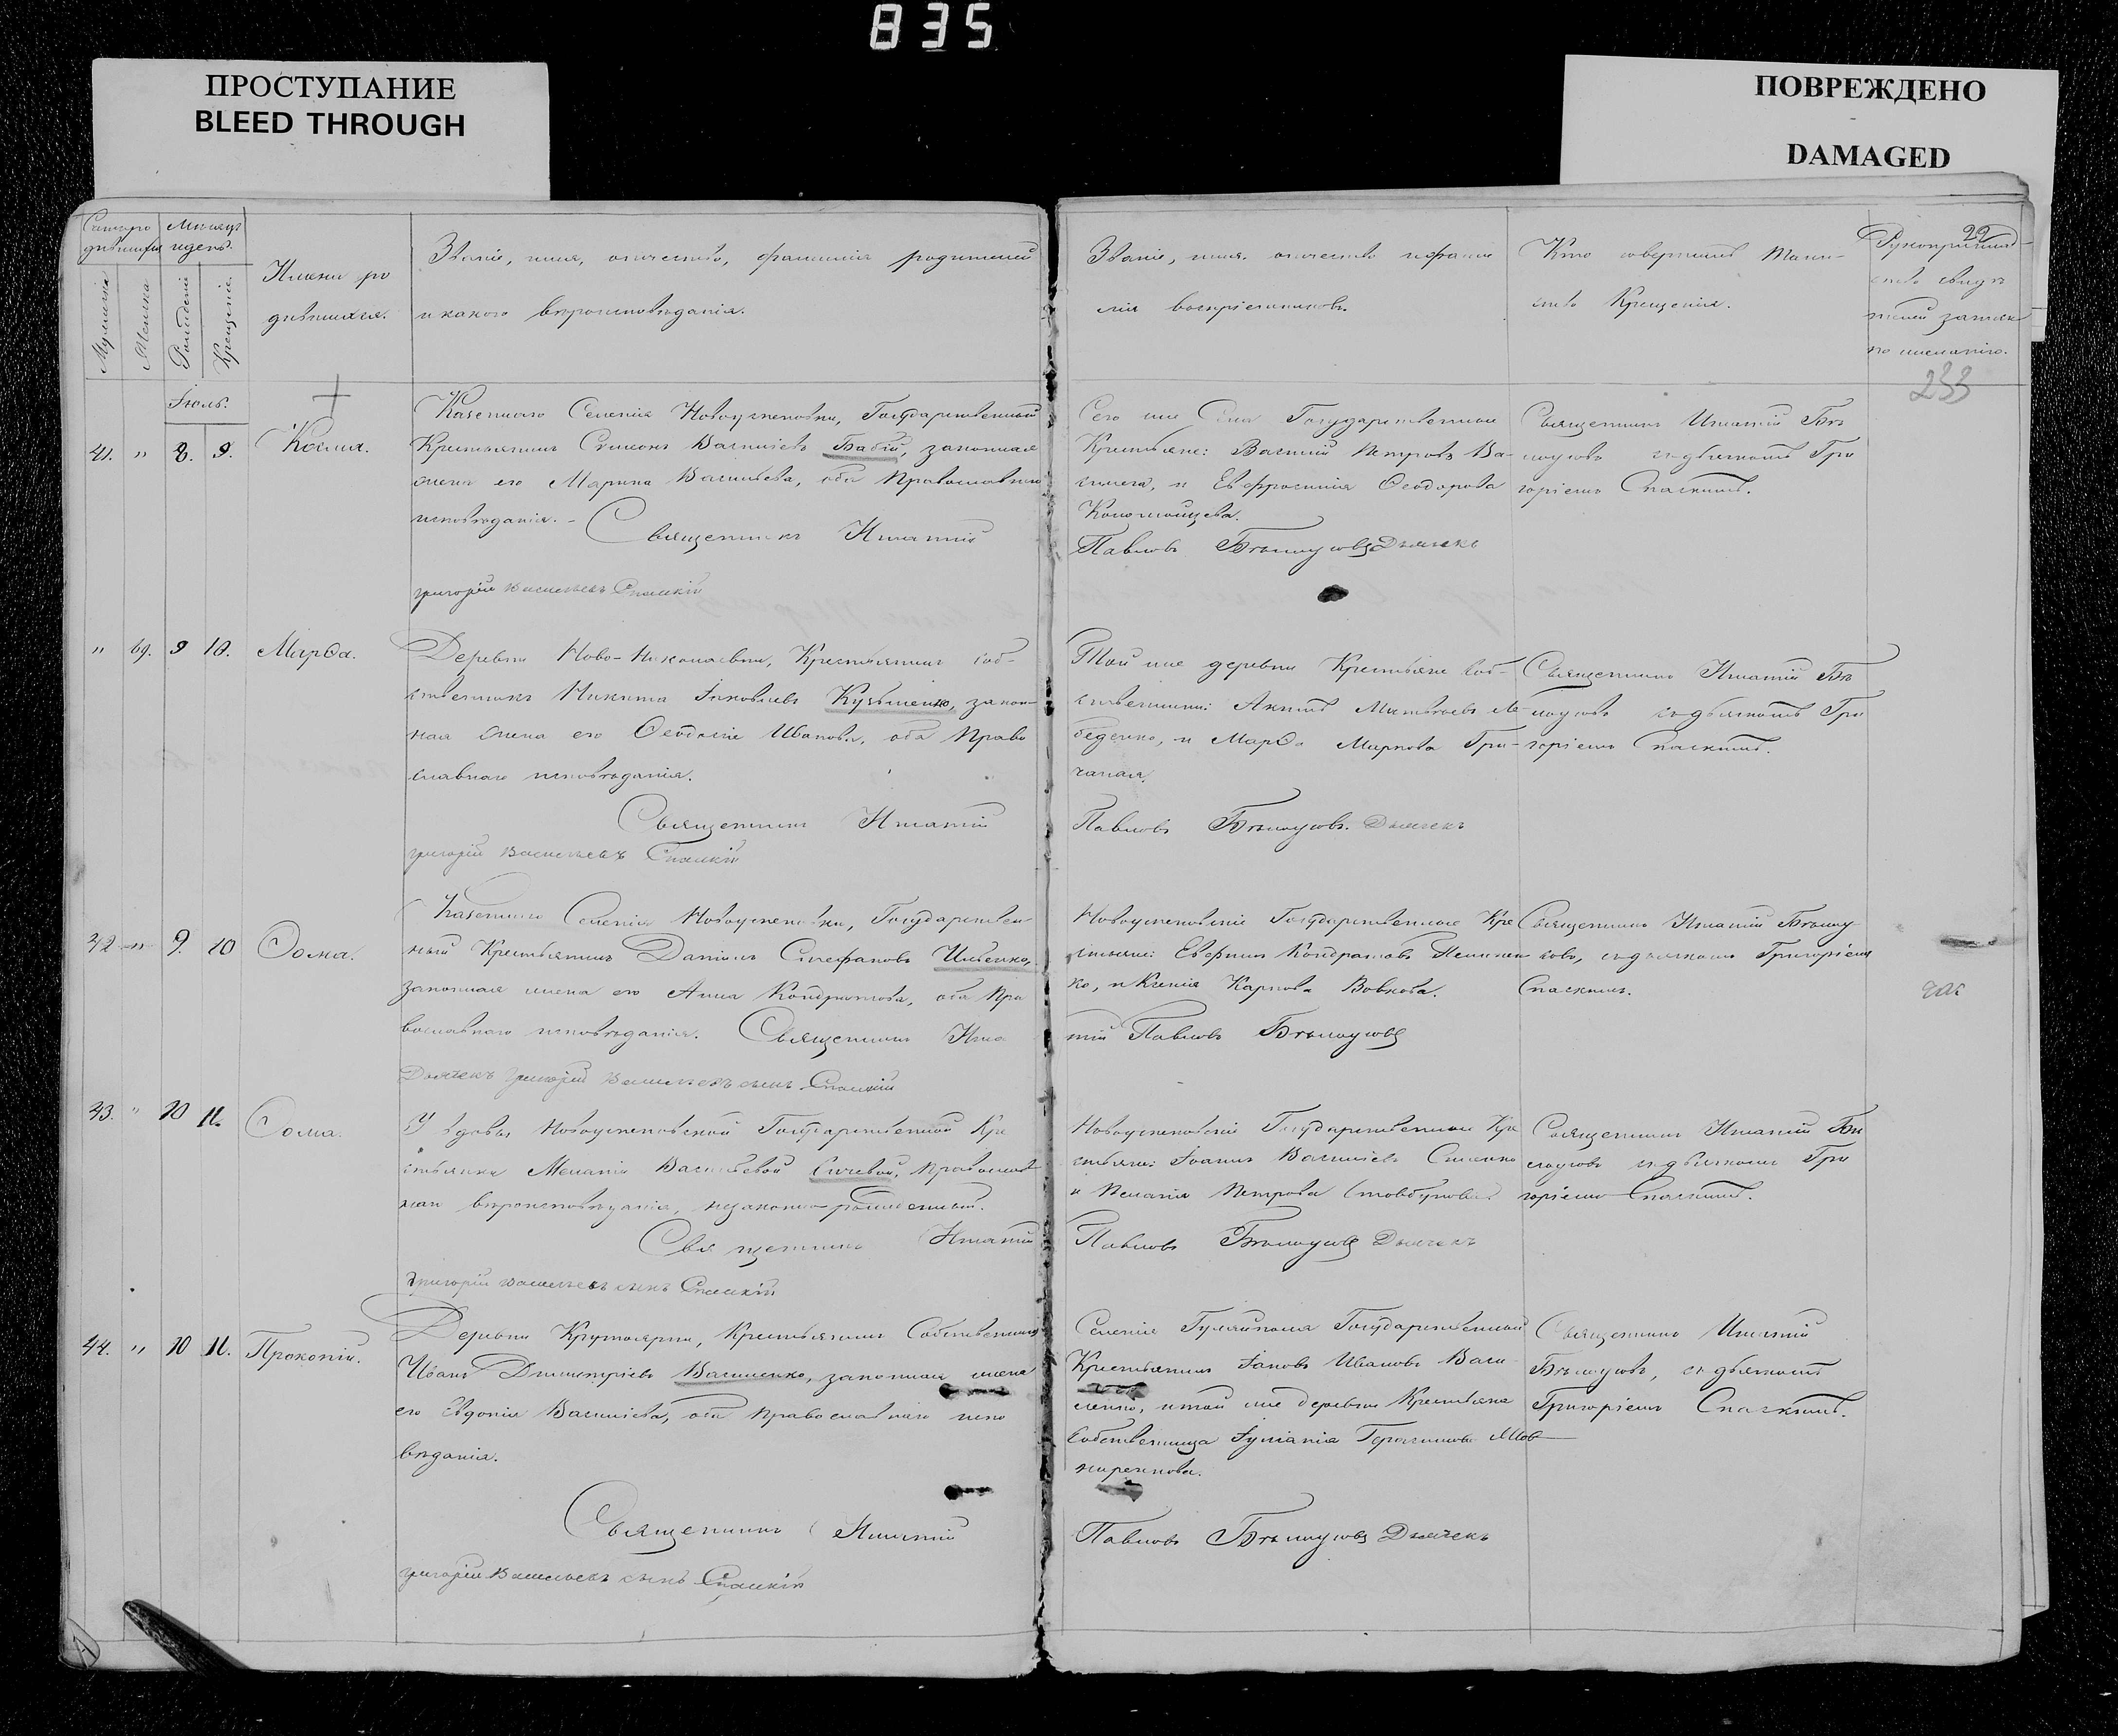 835
ПРОСТУПАНИЕ
BLEED THROUGH
ПОВРЕЖДЕНО
DAMAGED
Счетъ родившихся
Мѣсяцъ и день.
Мужеска
Женска
Рожденія
Крещенія.
Имена родившихся.
Званіе, имя, отчество, фамилія родителей
и какого вѣроисповѣданія.
Званіе, имя, отчество и фами
лія воспріемниковъ.
Кто совершилъ таин-
ство Крещенія.
22
Рукоприклад-
ство свидѣ
телей записи
по желанію.
233
Іюль.
41. " 8. 9. Косма.
Казеннаго Селенія Новоуспеновки, Государственный
Крестьянинъ Симеонъ Васильевъ Бабій, законная
жена его Марина Васильева, оба Православнаго
исповѣданія. - Священникъ Игнатій
григорій васильевъ Спаскій
Сего же Села Государственные
Крестьяне: Василій Петровъ Ва-
и Евфросинія Ѳеодорова
Коломойцева.
Павловъ Бѣлоусовъ Дьячекъ
Священникъ Игнатій Бѣ
лоусовъ съ дьячкомъ Гри
горіемъ Спаскимъ.
" 69. 9 10. Марѳа.
Деревни Ново-Николаевки, Крестьянинъ соб-
ственникъ Никита Іаковлевъ Кузьменко, закон-
ная жена его Ѳеодосія Иванова, оба Право
славнаго исповѣданія.
Священникъ Игнатій
григорій васильевъ Спаскій
Той же деревни Крестьяне соб-
ственники: Матвѣевъ Ле-
беденко, и Марѳа Маркова Гри-
Павловъ Бѣлоусовъ. Дьячекъ
Священникъ Игнатій Бѣ
лоусовъ съ дьячкомъ Гри
горіемъ Спаскимъ.
42 " 9. 10 Ѳома.
Казеннаго Селенія Новоуспеновки, Государствен-
ный Крестьянинъ Даніилъ Стефановъ Ильенко,
законная жена его Анна Кондратова, оба Пра
вославнаго исповѣданія. Священникъ Игна
Дьячекъ григорій васильевъ сынъ Спаскій
Новоуспеновскіе Государственные Кре
стьяне: Евфимъ Кондратовъ
ко, и Ксенія Карпова Вовкова.
тій Павловъ Бѣлоусовъ
Священникъ Игнатій Бѣлоу
совъ, съ дьячкомъ Григоріемъ
Спаскимъ.
43. " 10 11. Ѳома.
У вдовы Новоуспеновской Государственной Кре
стьянки Меланіи Васильевой Сичевой, Православ
наго вѣроисповѣданія, незаконно-рожденный.
Священникъ Игнатій
григорій васильевъ сынъ Спаскій
Новоуспеновскіе Государственные Кре
стьяне: Іоаннъ Васильевъ
и Пелагія Петрова Стовбунова
Павловъ Бѣлоусовъ Дьячекъ
Священникъ Игнатій Бѣ
лоусовъ съ дьячкомъ Гри
горіемъ Спаскимъ.
44. " 10 11. Прокопій.
Деревни Крутоярки, Крестьянинъ Собственникъ
Иванъ Димитріевъ Василенко, законная жена
его Евдокія Васильева, оба Православнаго испо
вѣданія.
Священникъ Игнатій
григорій васильевъ сынъ Спаскій
Селенія Гуляйполя Государственный
Крестьянинъ Іаковъ Ивановъ Васи-
ленко, и той же деревни Крестьянка
Собственница Іуліанія Герасимова Мов-
Павловъ Бѣлоусовъ Дьячекъ
Священникъ Игнатій
Бѣлоусовъ, съ дьячкомъ
Григоріемъ Спаскимъ.